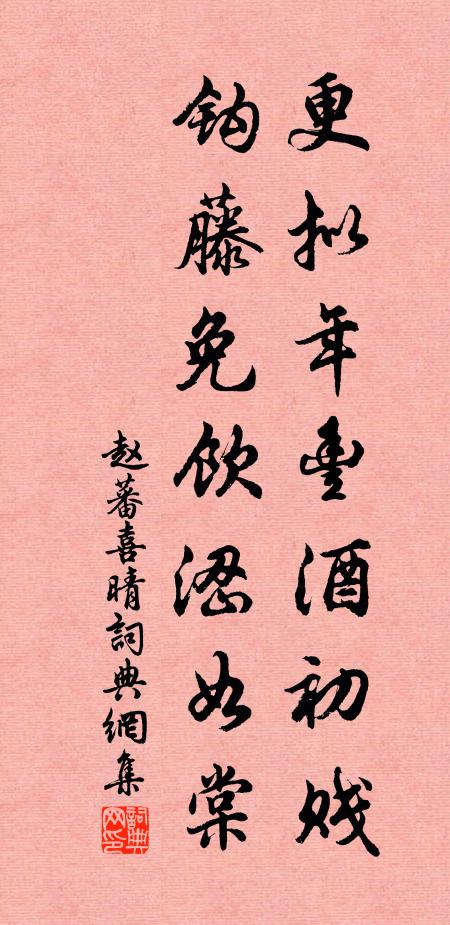 更拟年豐酒初贱
鈎藤免饮涩如棠
赵蕃喜晴詞典網集
詞典网印